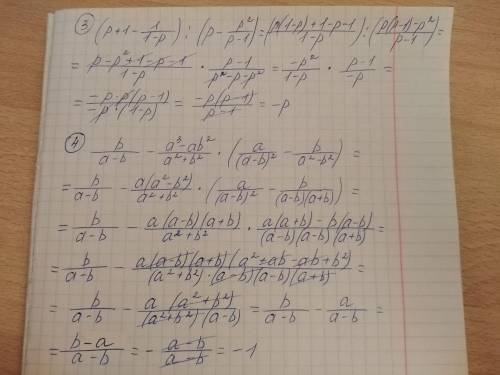 ③ (p+1-1/(1-p)) : (p-p²/(p-1)) = (p(1-p)+1-p-1)/(1-p) : (p(p-1)-p²)/(p-1) =
= (p-p²+1-p-1)/(1-p) · (p-1)/(p²-p-p²) = -p²/(1-p) · (p-1)/(-p) =
= (-p·p·(p-1))/(-p·(1-p)) = (-p(p-1))/(p-1) = -p
④ b/(a-b) - (a³-ab²)/(a²+b²) · (a/(a-b)² - b/(a²-b²)) =
= b/(a-b) - a(a²-b²)/(a²+b²) · (a/(a-b)² - b/((a-b)(a+b))) =
= b/(a-b) - a(a-b)(a+b)/(a²+b²) · (a(a+b)-b(a-b))/((a-b)(a-b)(a+b)) =
= b/(a-b) - a(a-b)(a+b)(a²+ab-ab+b²)/((a²+b²)·(a-b)(a-b)(a+b)) =
= b/(a-b) - a(a²+b²)/((a²+b²)(a-b)) = b/(a-b) - a/(a-b) =
= (b-a)/(a-b) = -(a-b)/(a-b) = -1